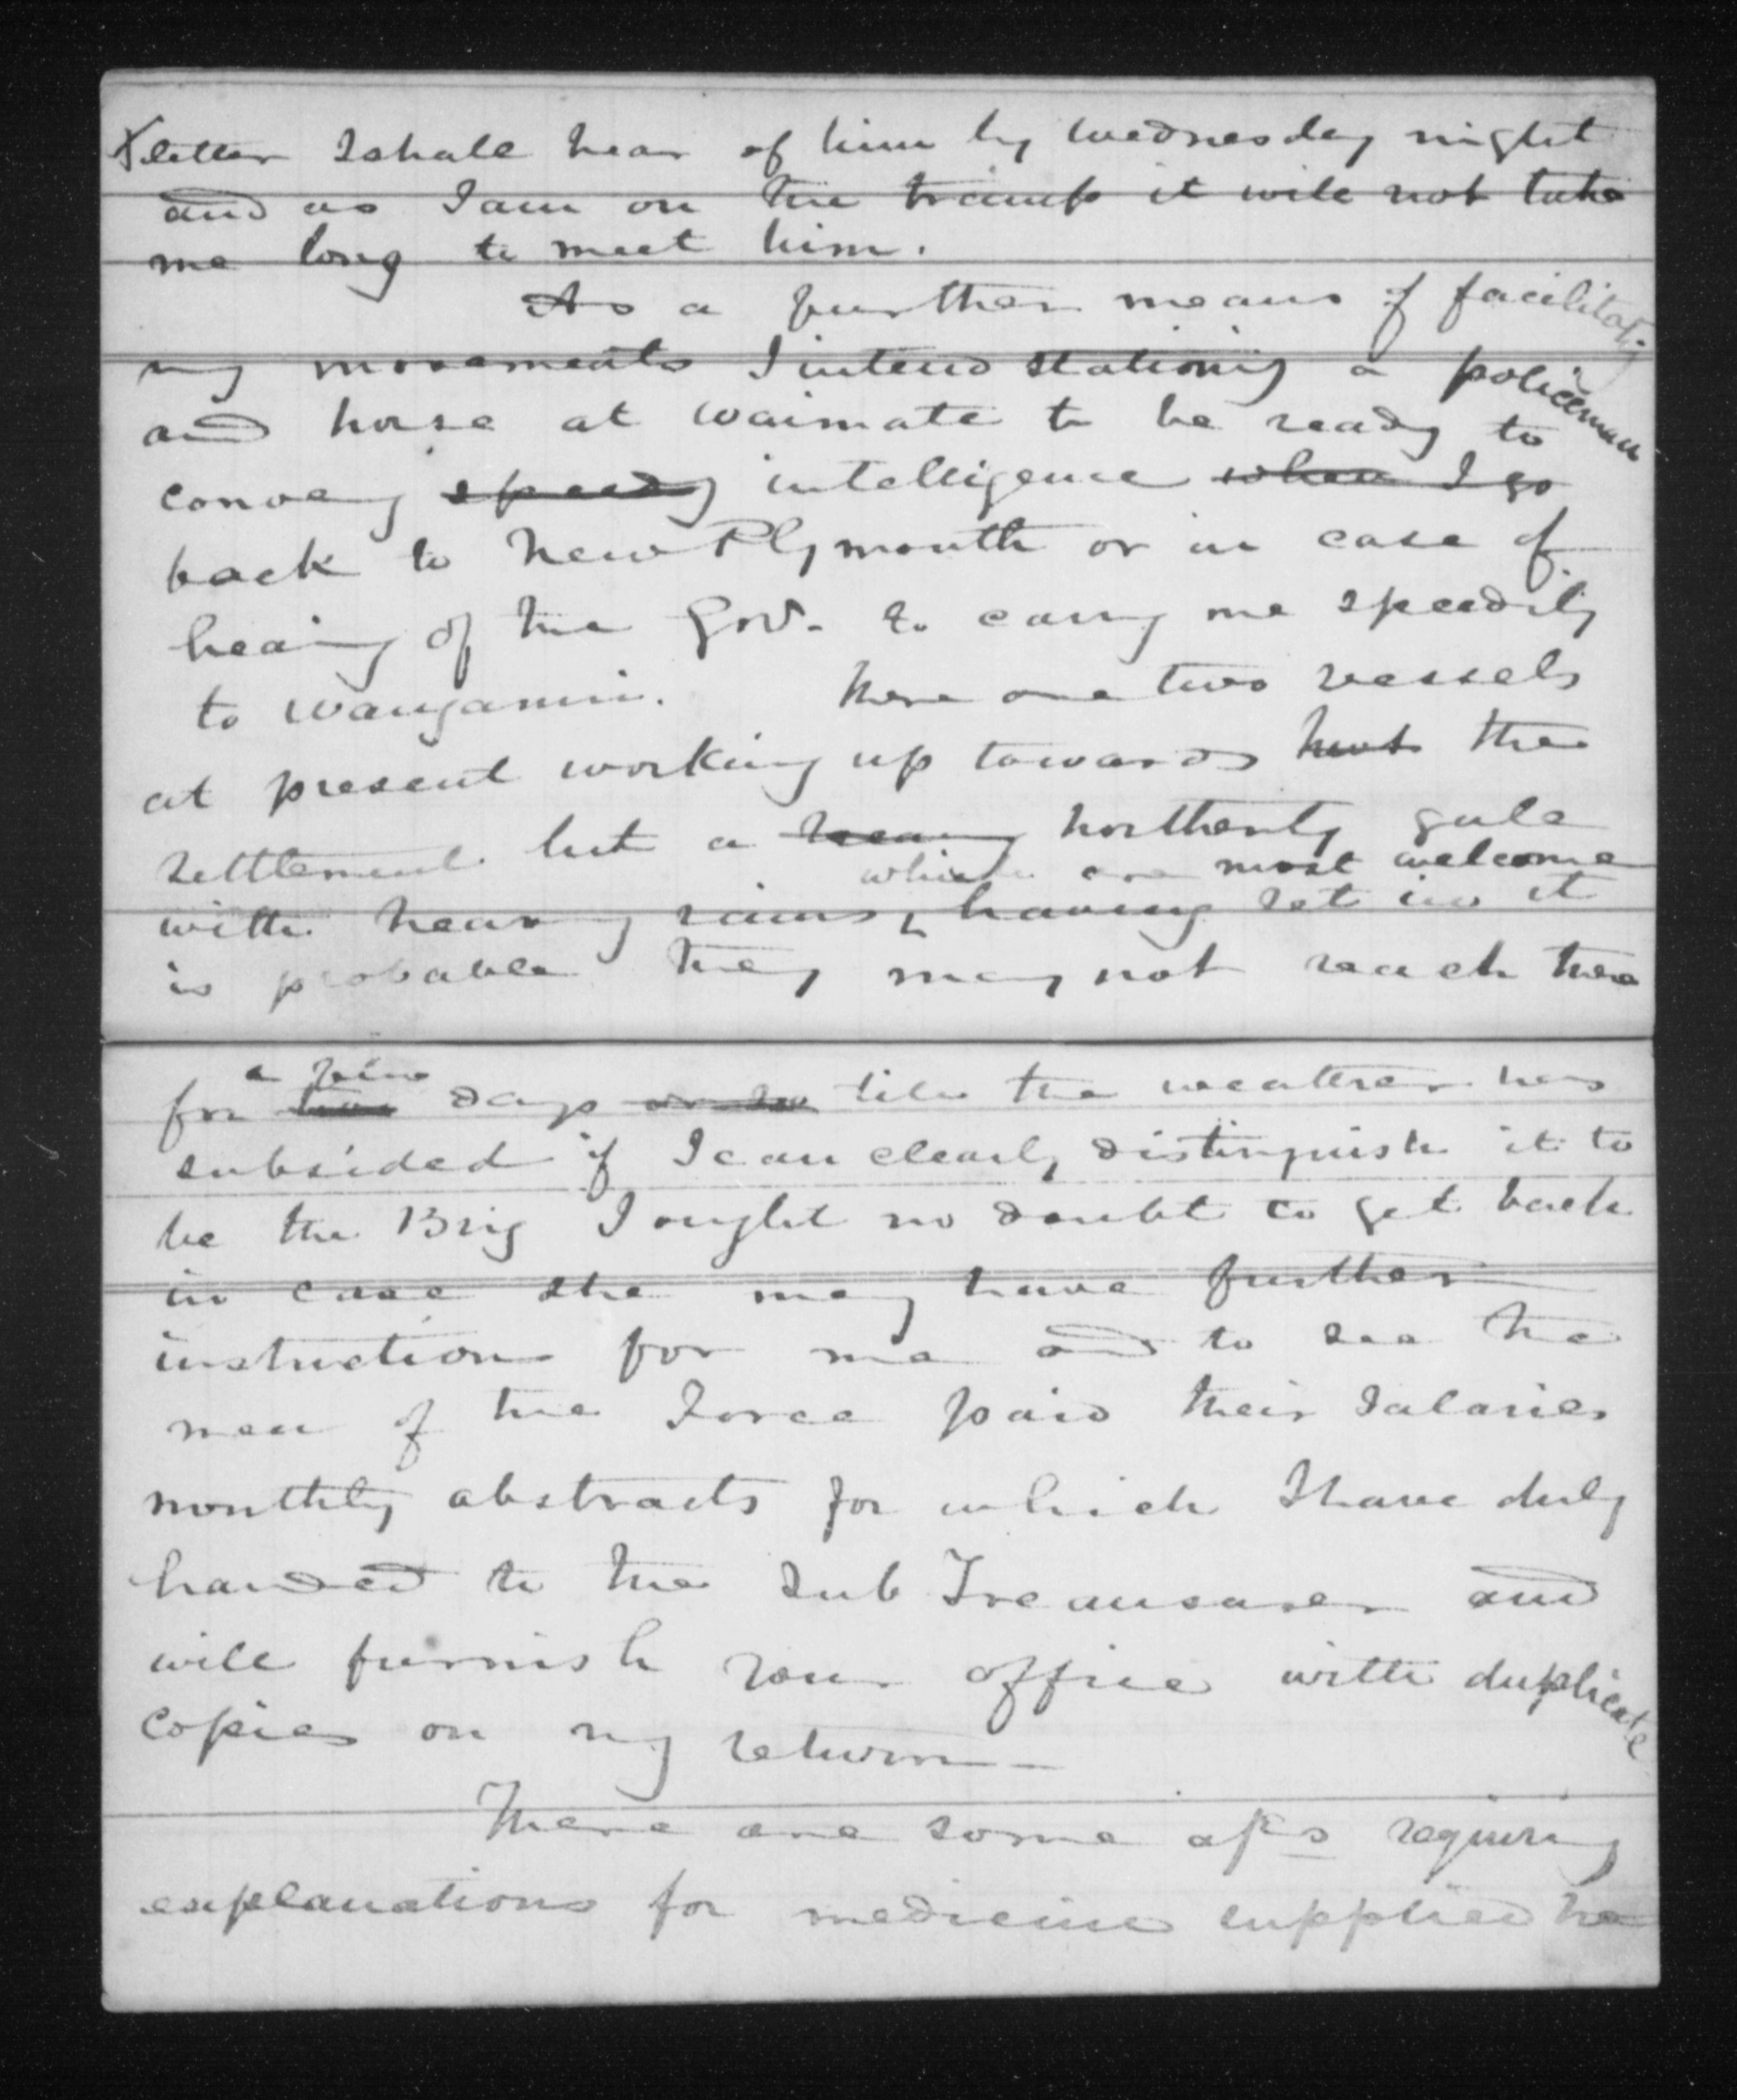 letter I shall hear of him by Wednesday night
and as I am on the tramp it will not take
me long to meet him.
As a further means of facilitatg
my movements I intend stationing a policeman
and horse at Waimate to be ready to
convey speedy intelligence when I go
back to New Plymouth or in case of
hearing of the Govr. to carry me speedily
to Wanganui. There are two vessels
at present working up towards the
settlement but a heavy northerly gale
which are most welcome
with heavy rains, having set in it
is probable they may not reach there
a few
for two days or so till the weather has
subsided if I can clearly distinguish it to
be the Brig I ought no doubt to get back
in case she may have further
instruction for me and to see the
men of the Force paid their Salaries
monthly abstracts for which I have duly
handed to the Sub Treausarer and
will furnish your office with duplicate
copies on my return —
There are some requiring
explanations for medicine supplied the